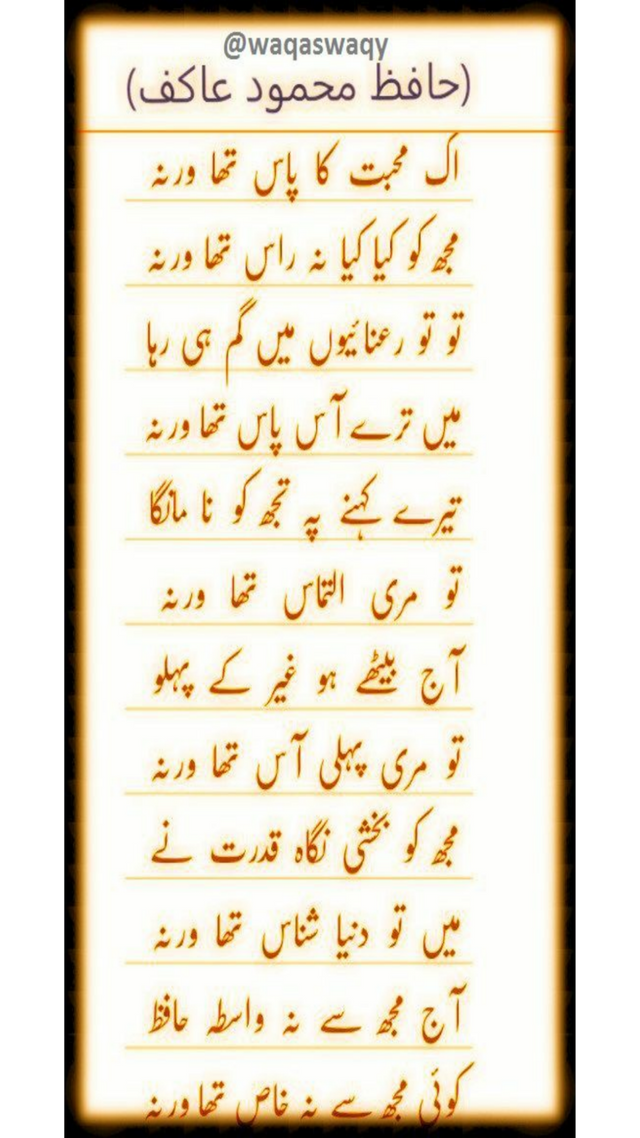 @waqaswaqy
(حافظ محمود عاکف)
اک محبت کا پاس تھا ورنہ
مجھ کو کیا کیا نہ راس تھا ورنہ
تو تو رعنائیوں میں گم ہی رہا
میں ترے آس پاس تھا ورنہ
تیرے کہنے پہ تجھ کو نا مانگا
تو مری التماس تھا ورنہ
آج بیٹھے ہو غیر کے پہلو
تو مری پہلی آس تھا ورنہ
مجھ کو بخشی نگاہ قدرت نے
میں تو دنیا شناس تھا ورنہ
آج مجھ سے نہ واسطہ حافظ
کوئی مجھ سے نہ خاص تھا ورنہ